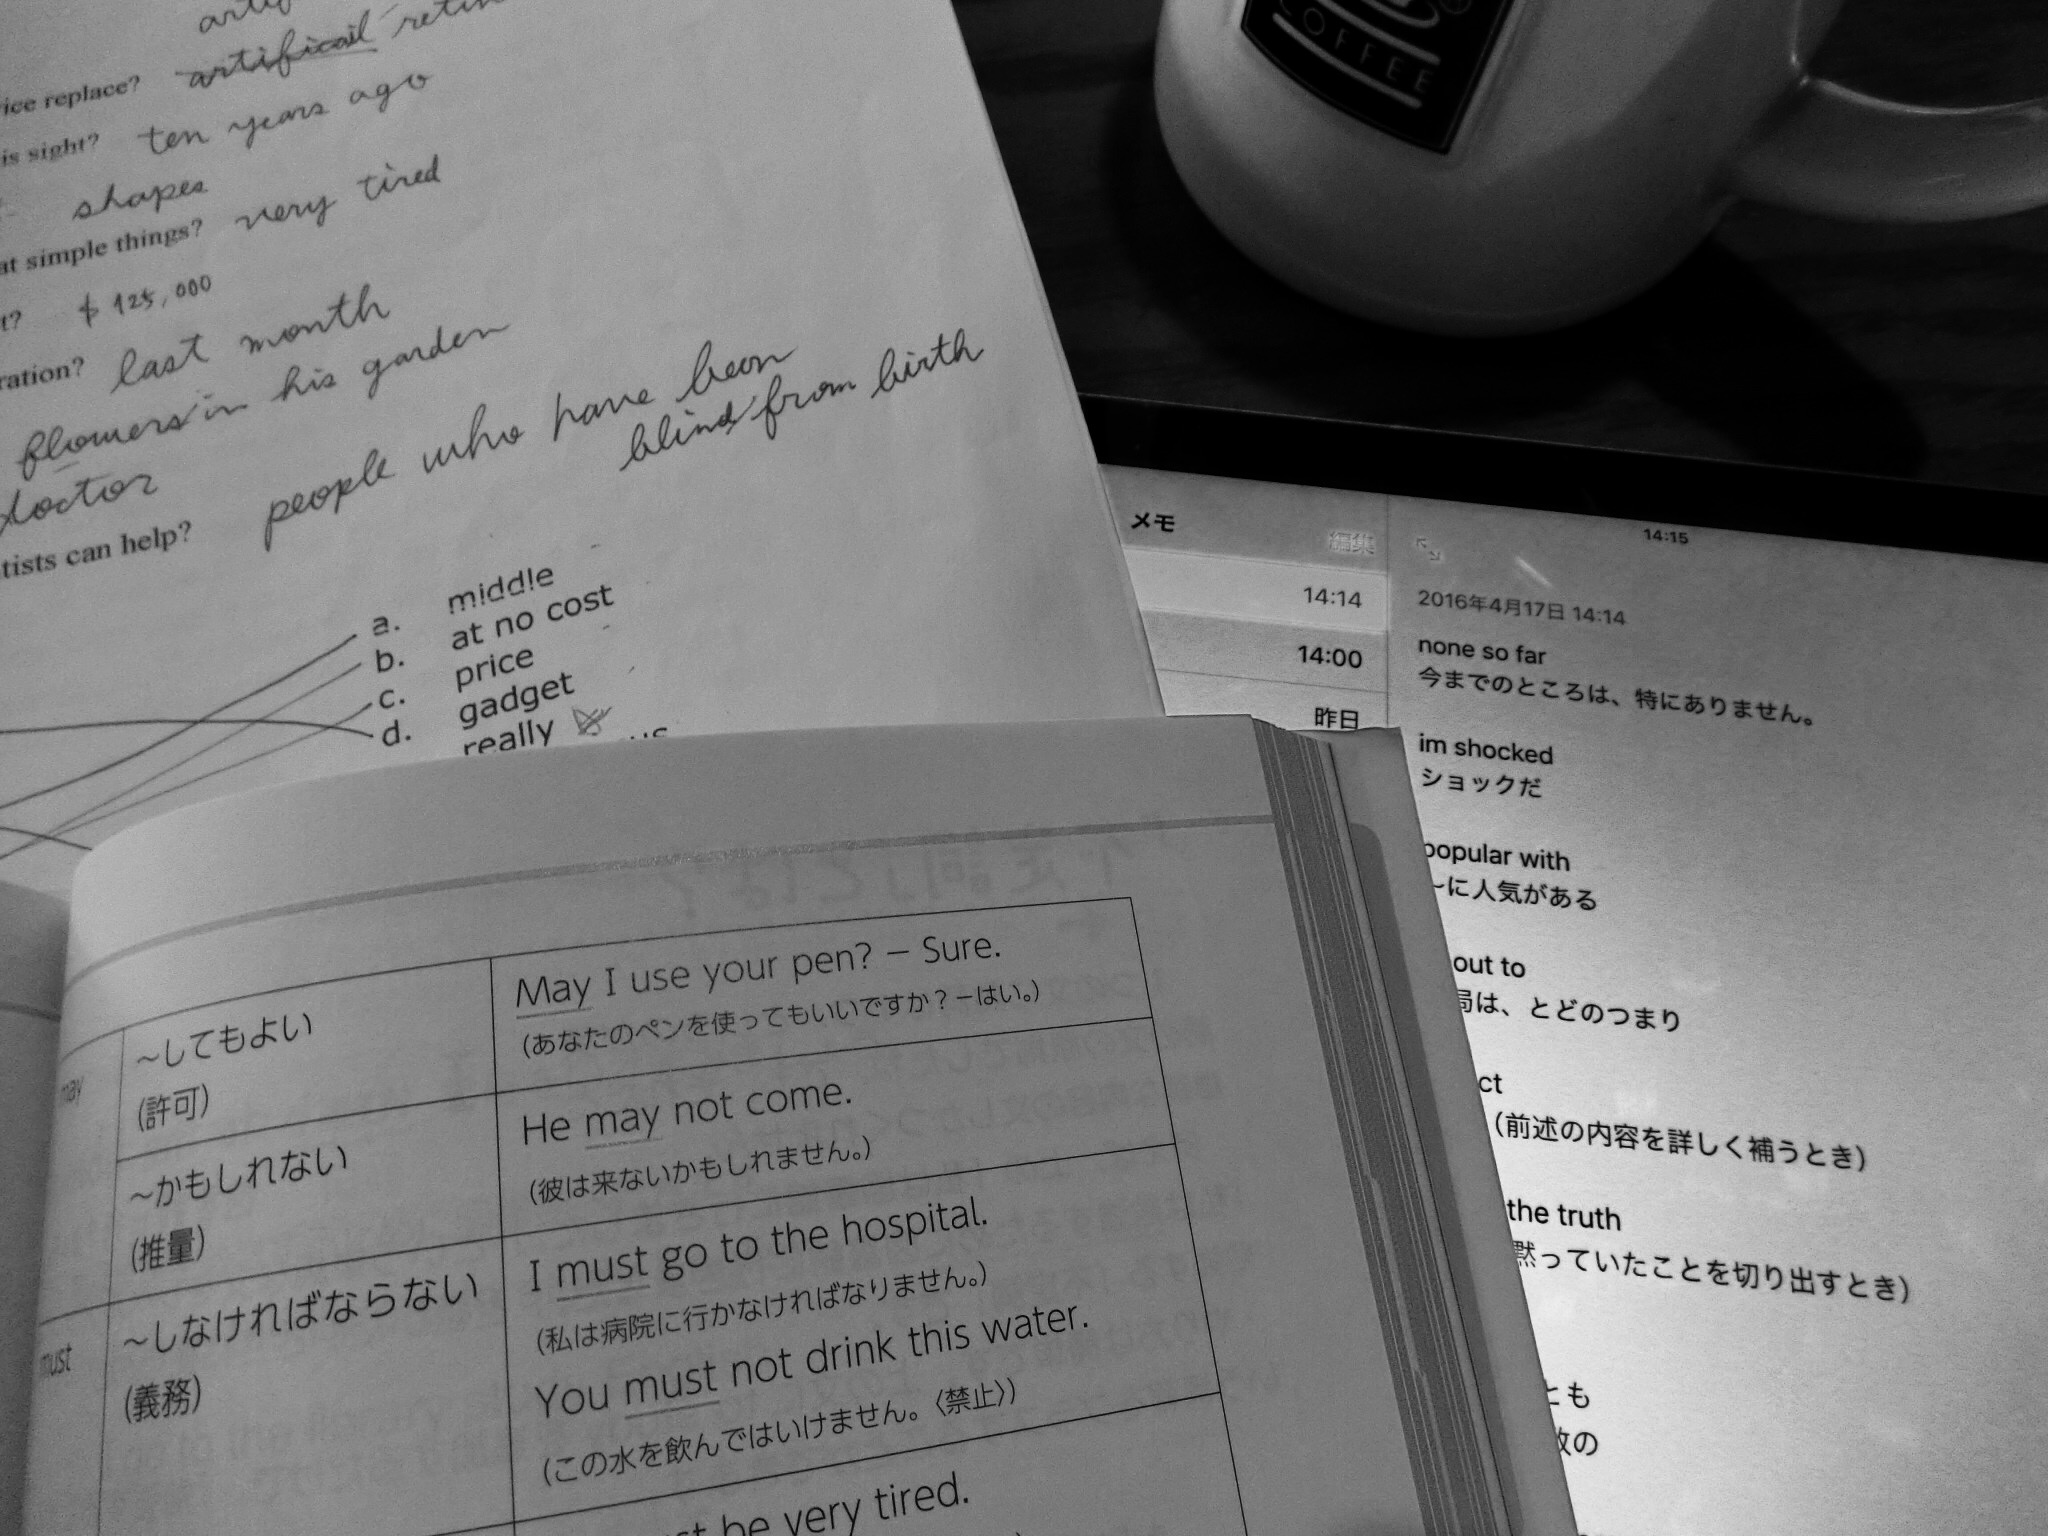 artificail
ice replace?
ten years ago
is sight?
shapes
at simple things? very tired
t? $ 125,000
ration? last month
flowers in his garden
doctor
people who have been
blind from birth
tists can help?
a. middle
b. at no cost
c. price
d. gadget
really
COFFEE
メモ 編集
14:14
14:00
昨日
14:15
2016年4月17日 14:14
none so far
今までのところは、特にありません。
im shocked
ショックだ
popular with
~に人気がある
out to
局は、とどのつまり
ct
(前述の内容を詳しく補うとき)
the truth
黙っていたことを切り出すとき)
とも
の
may
~してもよい
(許可)
May I use your pen? – Sure.
(あなたのペンを使ってもいいですか?－はい。)
~かもしれない
(推量)
He may not come.
(彼は来ないかもしれません。)
must
~しなければならない
(義務)
I must go to the hospital.
(私は病院に行かなければなりません。)
You must not drink this water.
(この水を飲んではいけません。〈禁止〉)
st be very tired.